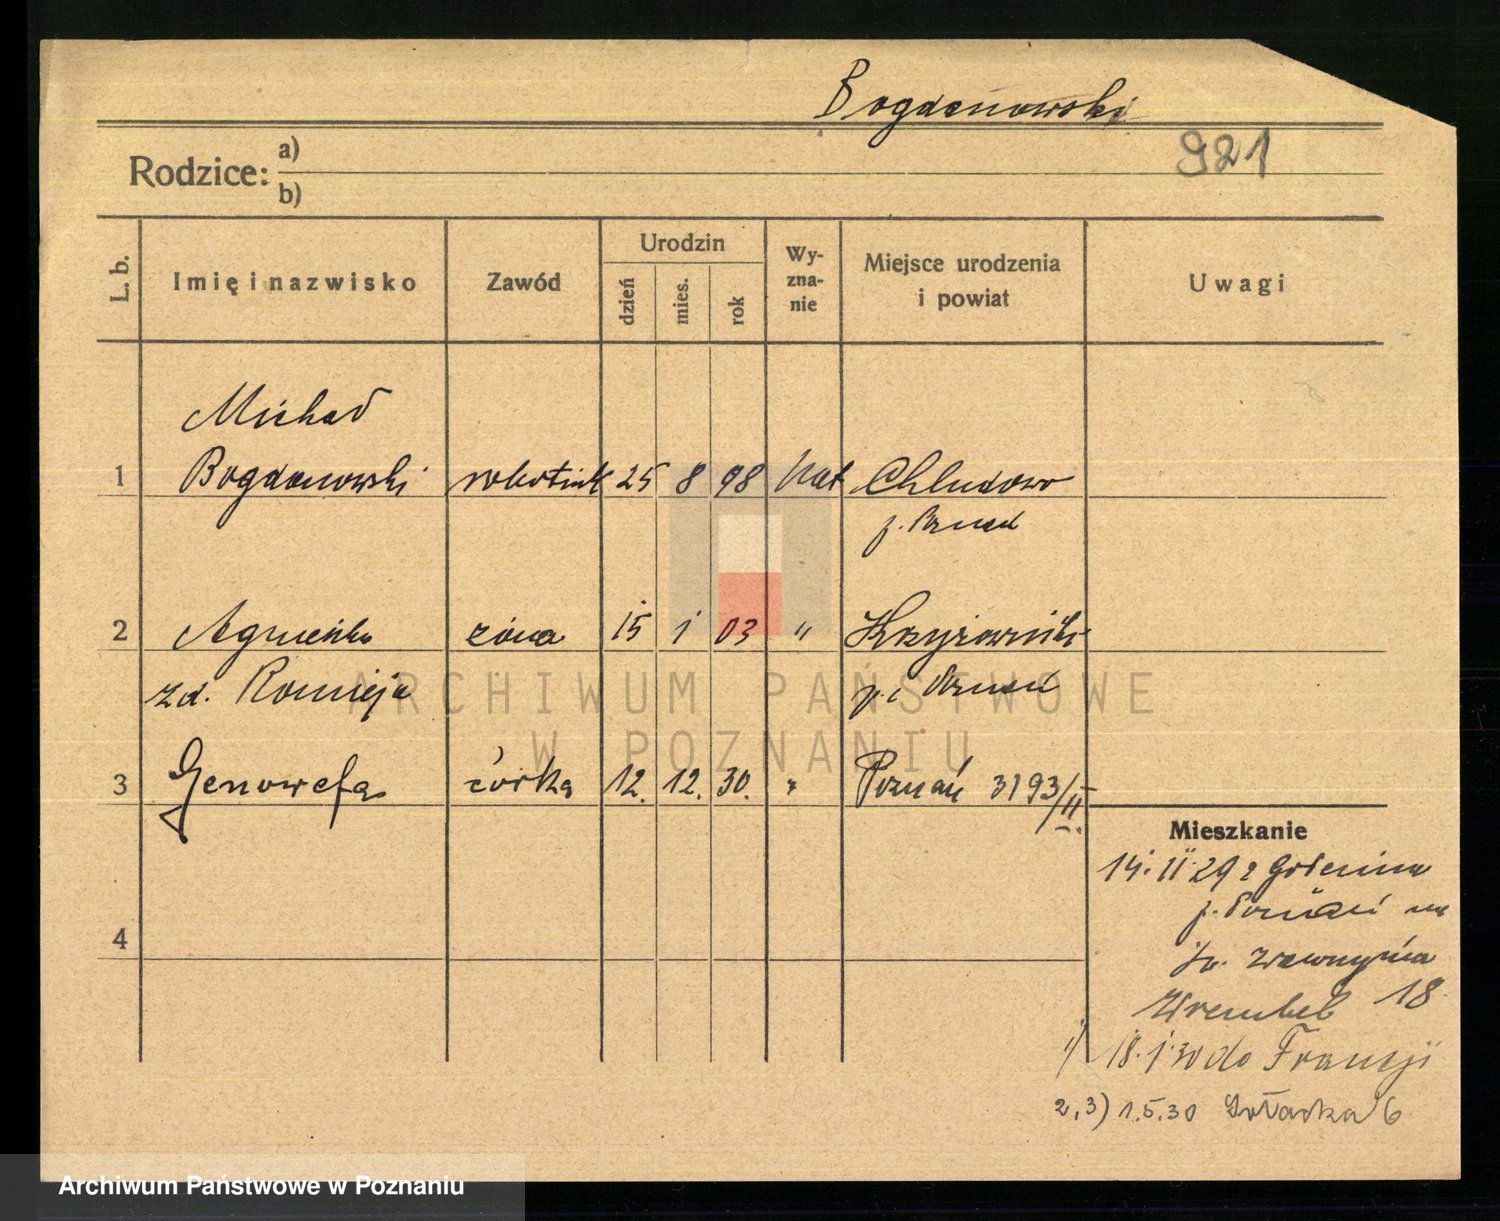 Bogdanowski
921
Rodzice: a)
b)
L. b. Imię i nazwisko Zawód Urodzin dzień mies. rok Wy-zna-nie Miejsce urodzenia i powiat Uwagi
Michał
1 Bogdanowski robotnik 25 8 98 kat Chludowo
p. Poznań
2 Agnieszka żona 15 1 03 " Krzyżowniki
zd. p. Poznań
3 Genowefa córka 12. 12. 30. " Poznań 3193/II.
Mieszkanie
14. II 29 z Golencina
p. Poznań na
św. Wawrzyńca
4
18
1) 18. 1. 30 do Francji
2,3) 1.5.30 6
ARCHIWUM PAŃSTWOWE
W POZNANIU
Archiwum Państwowe w Poznaniu